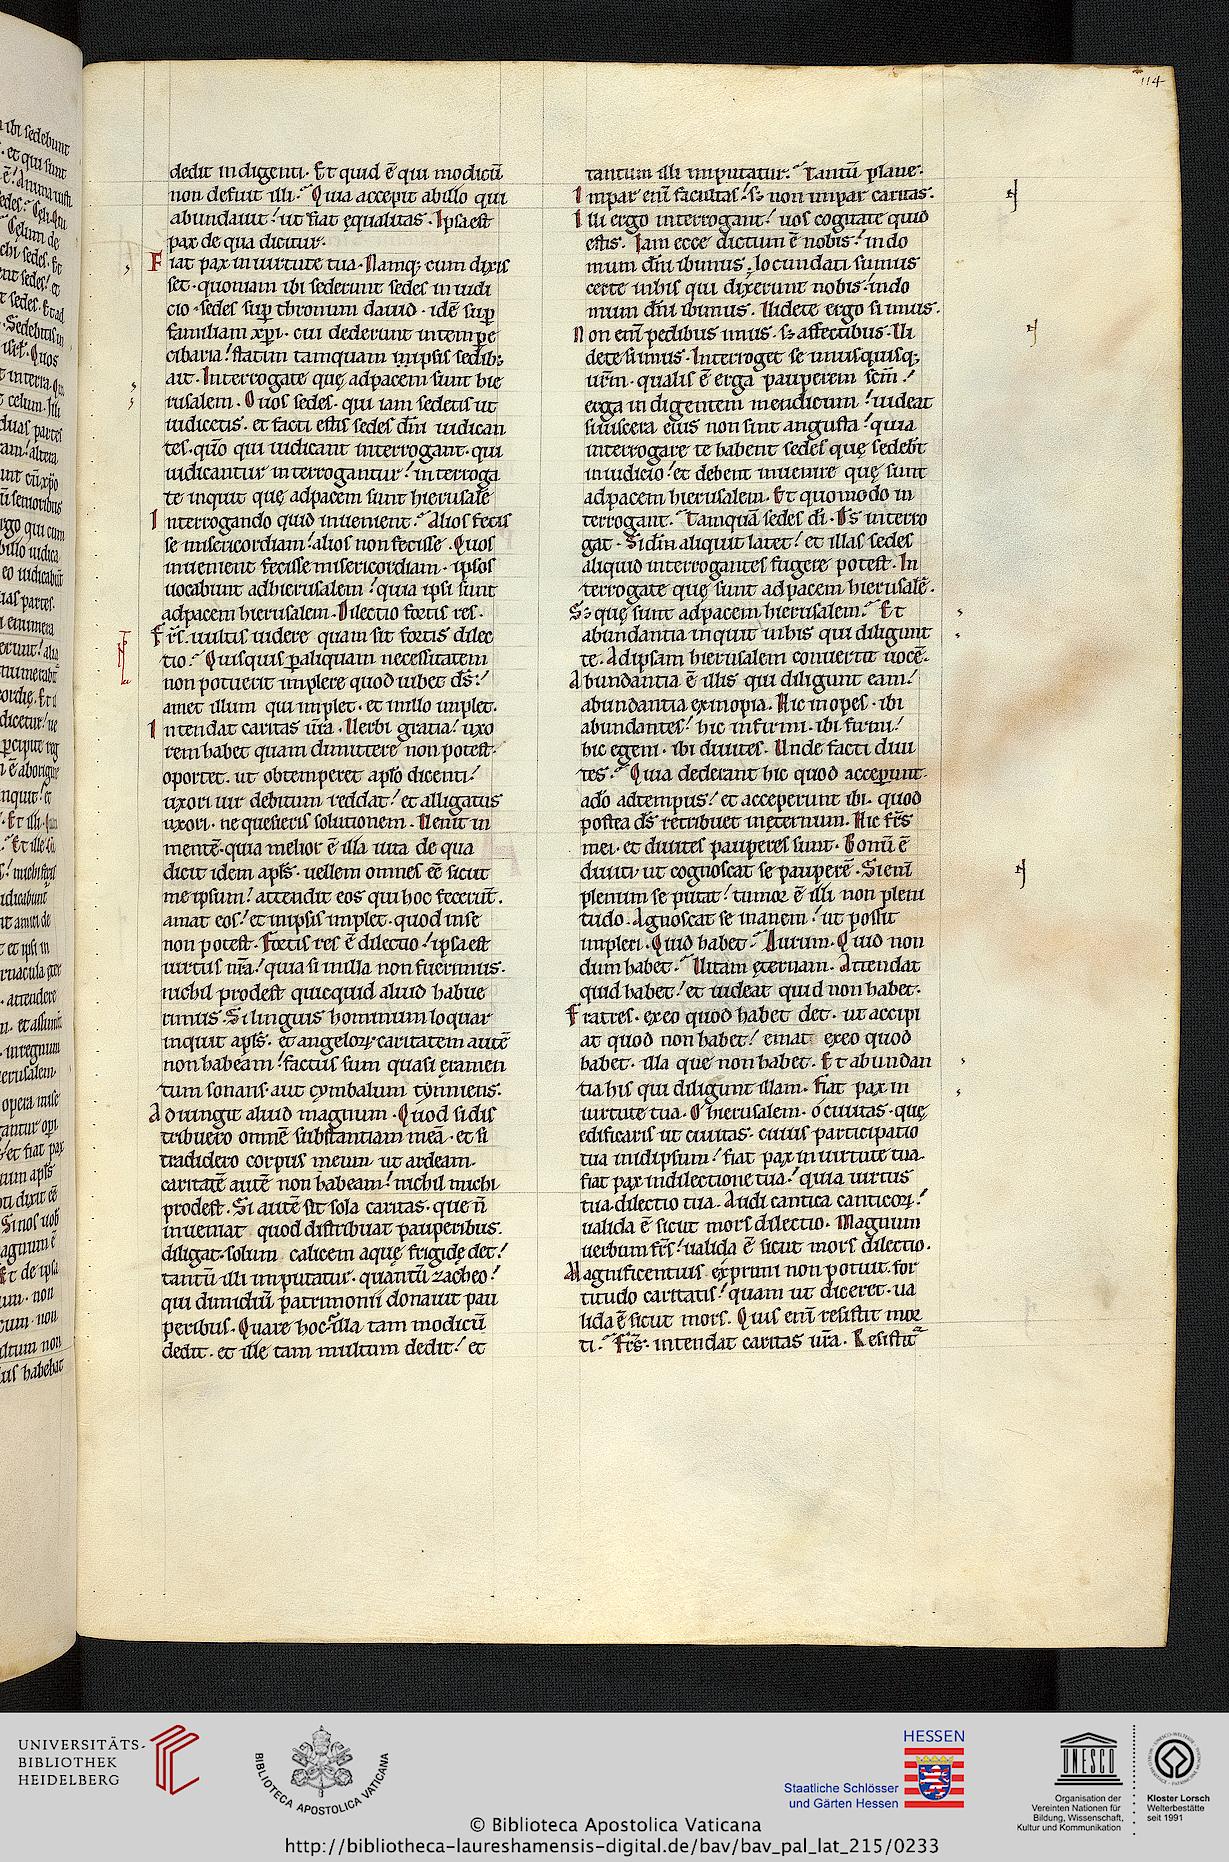 114
dedit indigenti. Et quid ē qui modicū
non defuit illi. Quia accepit ab illo qui
abundauit! ut fiat ęqualitas. Ipsa est
pax de qua dicitur.
Fiat pax in uirtute tua. Namq; cum dixis
set. quoniam ibi sederunt sedes in iudi
cio. sedes sup̄ thronum dauid. idē sup̄
familiam xp̄i. cui dederunt in tempe
cibaria! statim tamquam in ipsis sedib;
ait. Interrogate quę ad pacem sunt hie
rusalem. O uos sedes. qui iam sedetis ut
iudicetis. et facti estis sedes dn̄i iudican
tes. qūo qui iudicant interrogant. qui
iudicantur interrogantur! interroga
te inquit quę ad pacem sunt hierusalē
Interrogando quid inuenient? Alios fecis
se misericordiam! alios non fecisse. Quos
inuenient fecisse misericordiam. ipsos
uocabunt ad hierusalem! quia ipsi sunt
ad pacem hierusalem. Dilectio fortis res.
Fr̄s. uultis uidere quam sit fortis dilec
tio? Quisquis p aliquam necessitatem
non potuerit implere quod iubet ds̄!
amet illum qui implet. et in illo implet.
Intendat caritas ur̄a. Uerbi gratia! uxo
rem habet quam dimittere non potest.
oportet. ut obtemperet apl̄o dicenti!
uxori uir debitum reddat! et alligatus
uxori. ne quesieris solutionem. Uenit in
mentē. quia melior ē illa uita de qua
dicit idem apl̄s. uellem omnes ēē sicut
me ipsum! attendit eos qui hoc fecerūt.
amat eos! et in ipsis implet. quod in se
non potest. Fortis res ē dilectio! ipsa est
uirtus nr̄a! quia si in illa non fuerimus.
nichil prodest quicquid aliud habue
rimus. Si linguis hominum loquar
inquit apl̄s. et angeloꝝ. caritatem autē
non habeam! factus sum quasi ęramen
tum sonans. aut cymbalum tynniens.
Adiungit aliud magnum. Quod si dis
tribuero omnē substantiam meā. et si
tradidero corpus meum ut ardeam.
caritatē autē non habeam! nichil michi
prodest. Si autē sit sola caritas. que n̄
inueniat quod distribuat pauperibus.
diligat. solum calicem aquę frigidę det!
tantū illi imputatur. quantū zacheo!
qui dimidiū patrimonii donauit pau
peribus. Quare hoc? illa tam modicū
dedit. et ille tam multum dedit! et
tantum illi imputatur? Tantū plane.
Impar enī facultas. sꝫ non impar caritas.
Illi ergo interrogant! uos cogitate quid
estis. Iam ecce dictum ē nobis! in do
mum dn̄i ibimus. Iocundati sumus
certe in his qui dixerunt nobis! in do
mum dn̄i ibimus. Uidete ergo si imus.
Non enī pedibus imus. sꝫ affectibus. Ui
dete si imus. Interroget se unusquisq;
ur̄m. qualis ē erga pauperem scm̄!
erga indigentem mendicum! uideat
si uiscera eius non sint angusta! quia
interrogare te habent sedes quę sedebt̄
in iudicio! et debent inuenire quę sunt
ad pacem hierusalem. Et quomodo in
terrogant? Tamquā sedes dī. Ds̄ interro
gat. Si dm̄ aliquit latet! et illas sedes
aliquid interrogantes fugere potest. In
terrogate quę sunt ad pacem hierusalē.
Sꝫ quę sunt ad pacem hierusalem? Et
abundantia inquit in his qui diligunt
te. Ad ipsam hierusalem conuertit uocē.
Abundantia ē illis qui diligunt eam!
abundantia ex inopia. Hic inopes. ibi
abundantes! hic infirmi. ibi firmi!
hic egeni. ibi diuites. Unde facti diui
tes? Quia dederant hic quod acceperunt.
a dō ad tempus! et acceperunt ibi. quod
postea ds̄ retribuet in ęternum. Hic fr̄s
mei. et diuites pauperes sunt. Bonū ē
diuiti ut cognoscat se pauperē. Si enī
plenum se putat! tumor ē illi non pleni
tudo. Agnoscat se inanem! ut possit
impleri. Quid habet? Aurum. Quid non
dum habet? Uitam ęternam. Attendat
quid habet! et uideat quid non habet.
Fratres. ex eo quod habet det. ut accipi
at quod non habet! emat ex eo quod
habet. illa que non habet. Et abundan
tia his qui diligunt illam. Fiat pax in
uirtute tua. O hierusalem. o ciuitas. que
edificaris ut ciuitas. cuius participatio
tua in id ipsum! fiat pax in uirtute tua.
fiat pax in dilectione tua! quia uirtus
tua. dilectio tua. Audi cantica canticoꝝ!
ualida ē sicut mors dilectio. Magnum
uerbum fr̄s! ualida ē sicut mors dilectio.
Magnificentius exprimi non potuit. for
titudo caritatis! quam ut diceret. ua
lida ē sicut mors. Quis enī resistit mor
ti? Fr̄s. intendat caritas ur̄a. Resistit
UNIVERSITÄTS-
BIBLIOTHEK
HEIDELBERG
BIBLIOTECA APOSTOLICA VATICANA
HESSEN
Staatliche Schlösser
und Gärten Hessen
UNESCO
Organisation der
Vereinten Nationen für
Bildung, Wissenschaft,
Kultur und Kommunikation
Kloster Lorsch
Welterbestätte
seit 1991
© Biblioteca Apostolica Vaticana
http://bibliotheca-laureshamensis-digital.de/bav/bav_pal_lat_215/0233